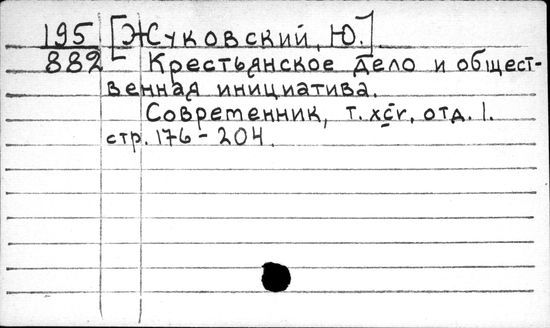 195 [Жуковский, Ю.]
882 Крестьянское дело и общест-
венная инициатива.
Современник, т. xcv, отд. I.
стр. 176-204.